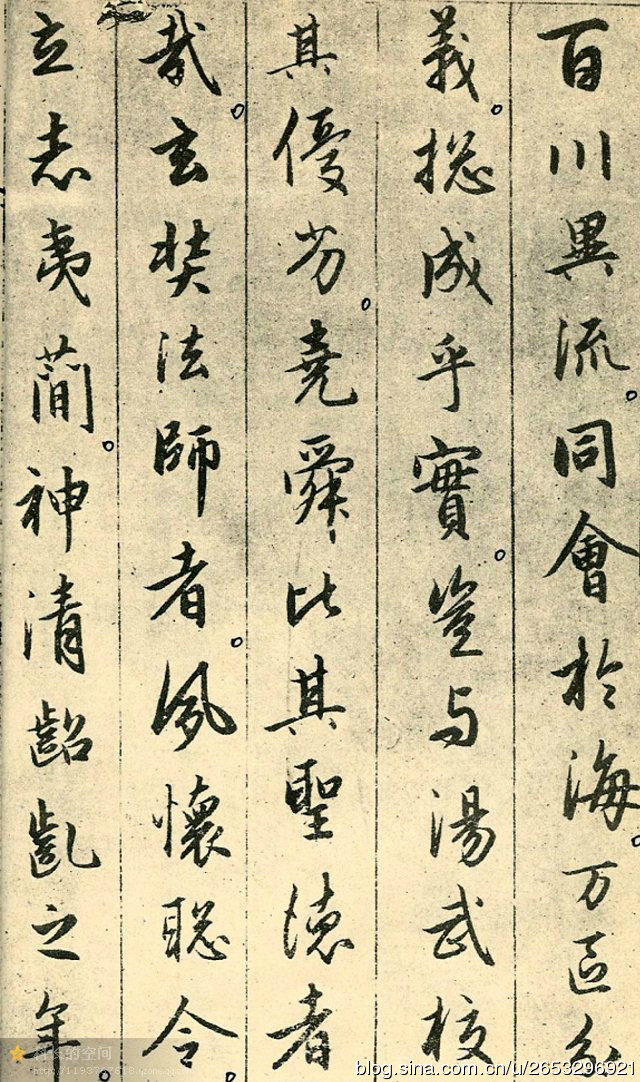 百川異流。同會於海。万区分
義。揔成乎實。豈与湯武校
其優劣。堯舜比其聖德者
哉。玄奘法師者。夙懷聰令。
立志夷簡。神清齠齓之年。
blog.sina.com.cn/u/2653296921